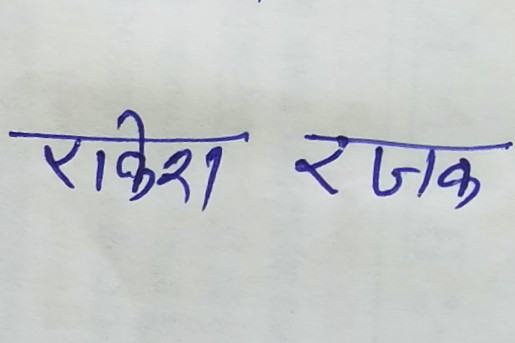 राकेश रजक